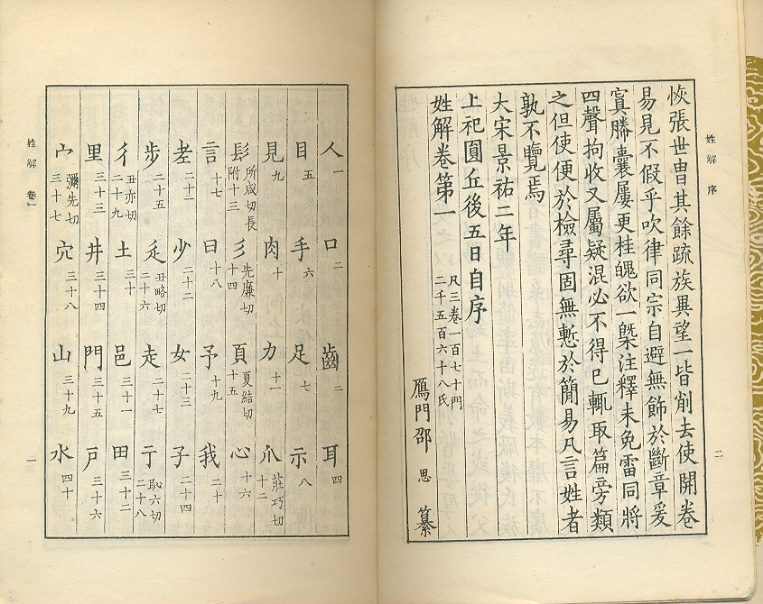 姓解 序
二
恢張世胄其餘疏族異望一皆削去使開卷
易見不假乎吹律同宗自避無飾於斷章爰
寘縢囊屢更桂魄欲一槩注釋未免雷同將
四聲拘收又屬疑混必不得已輒取篇旁類
之但使便於檢尋固無慙於簡易凡言姓者
孰不覽焉
大宋景祐二年
上祀圓丘後五日自序
姓解卷第一
凡三卷一百七十門
二千五百六十八氏
鴈門邵 思 纂
人一 口二 齒三 耳四
目五 手六 足七 示八
見九 肉十 力十一 爪莊巧切十二
髟所咸切長附十三 彡先廉切十四 頁夏結切十五 心十六
言十七 曰十八 予十九 我二十
老二十一 少二十二 女二十三 子二十四
步二十五 辵丑略切二十六 走二十七 亍恥六切二十八
彳丑亦切二十九 土三十 邑三十一 田三十二
里三十三 井三十四 門三十五 戶三十六
宀彌先切三十七 穴三十八 山三十九 水四十
姓解 卷一
一